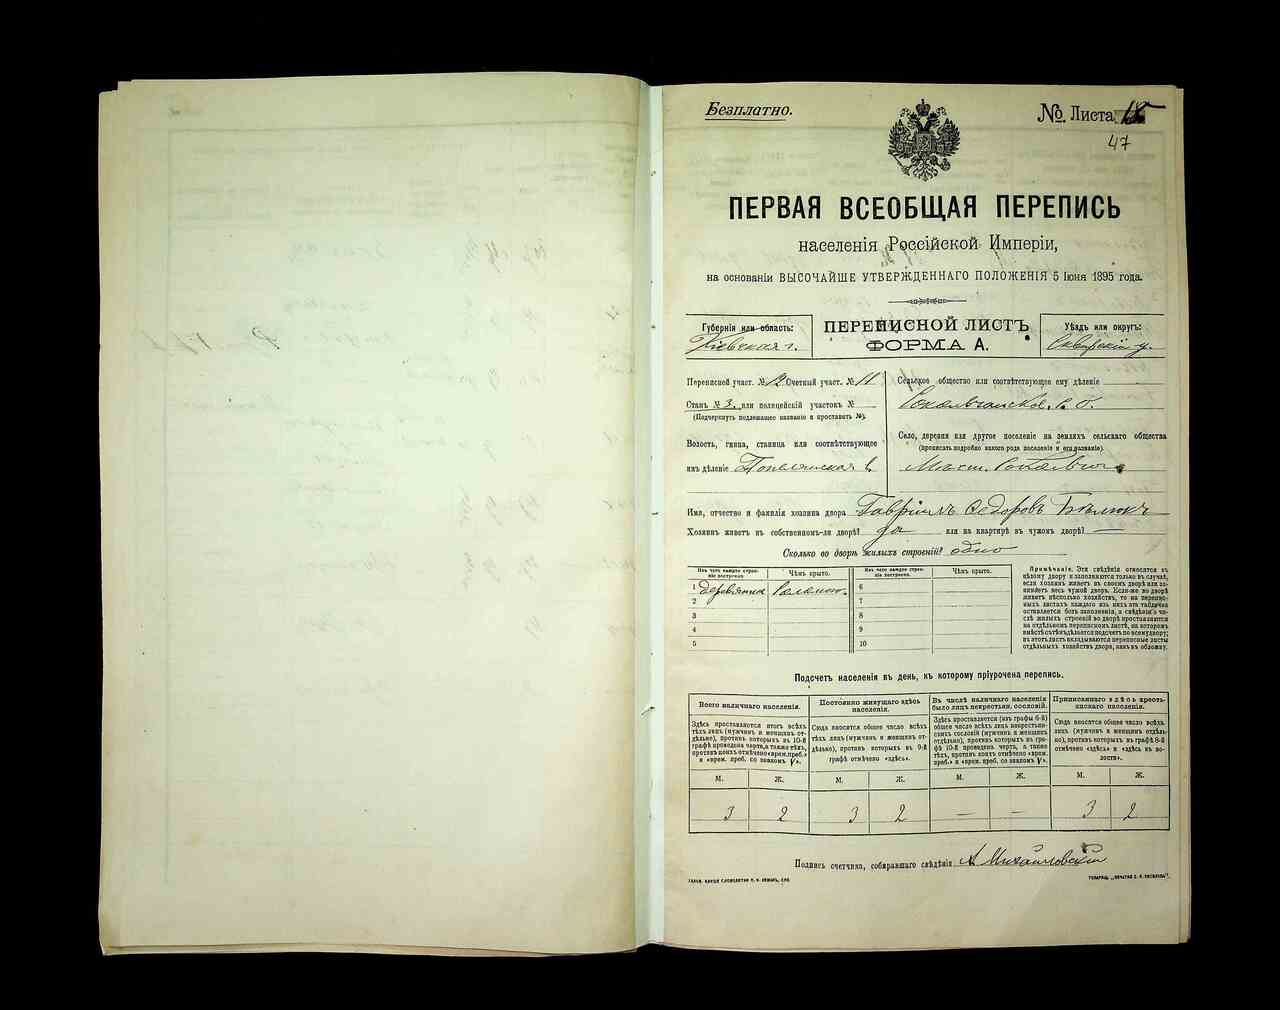 Безплатно.
№ Листа 15
47
ПЕРВАЯ ВСЕОБЩАЯ ПЕРЕПИСЬ
населенія Россійской Имперіи,
на основаніи ВЫСОЧАЙШЕ УТВЕРЖДЕННАГО ПОЛОЖЕНІЯ 5 Іюня 1895 года.
Губернія или область:
Кіевская г.
ПЕРЕПИСНОЙ ЛИСТЪ
ФОРМА А.
Уѣздъ или округъ:
Сквирскій у.
Переписной участ. № 12 Счетный участ. № 11
Станъ № 3. или полицейскій участокъ №
(Подчеркнуть подлежащее названіе и проставить №).
Волость, гмина, станица или соотвѣтствующее
имъ дѣленіе
Сельское общество или соотвѣтствующее ему дѣленіе
Село, деревня или другое поселеніе на земляхъ сельскаго общества
(прописать подробно какого рода поселеніе и его названіе).
Имя, отчество и фамилія хозяина двора Гавріилъ Ѳедоровъ
Хозяинъ живетъ въ собственномъ-ли дворѣ? да или на квартирѣ въ чужомъ дворѣ? —
Сколько во дворѣ жилыхъ строеній? одно
Изъ чего каждое строеніе построено.
Чѣмъ крыто.
Изъ чего каждое строеніе построено.
Чѣмъ крыто.
1 деревянна Соломою. 6
2 7
3 8
4 9
5 10
Примѣчаніе. Эти свѣдѣнія относятся къ
цѣлому двору и заполняются только въ случаѣ,
если хозяинъ живетъ въ своемъ дворѣ или за-
нимаетъ весь чужой дворъ. Если-же во дворѣ
живетъ нѣсколько хозяйствъ, то на перепис-
ныхъ листахъ каждаго изъ нихъ эта табличка
оставляется безъ заполненія, а свѣдѣнія о чи-
слѣ жилыхъ строеній во дворѣ проставляются
на отдѣльномъ переписномъ листѣ, на которомъ
вмѣстѣ съ тѣмъ дѣлается подсчетъ по всему двору;
въ этотъ листъ вкладываются переписные листы
отдѣльныхъ хозяйствъ двора, какъ въ обложку.
Подсчетъ населенія въ день, къ которому пріурочена перепись.
Всего наличнаго населенія.
Здѣсь проставляются итогъ всѣхъ
тѣхъ лиц (мужчинъ и женщинъ от-
дѣльно), противъ которыхъ въ 10-й
графѣ проведена черта, а также тѣхъ,
противъ коихъ отмѣчено «врем. преб.»
и «врем. преб. со знакомъ V».
Постоянно живущаго здѣсь
населенія.
Сюда вносятся общее число всѣхъ
тѣхъ лицъ (мужчинъ и женщинъ от-
дѣльно), противъ которыхъ въ 9-й
графѣ отмѣчено «здѣсь».
Въ числѣ наличнаго населенія
было лицъ некрестьян. сословій.
Здѣсь проставляется (изъ графы 6-й)
общее число всѣхъ лицъ некрестьян-
скихъ сословій (мужчинъ и женщинъ
отдѣльно), противъ которыхъ въ
графѣ 10-й проведена черта, а также
тѣхъ, противъ коихъ отмѣчено «врем.
преб.» и «врем. преб. со знакомъ V».
Приписаннаго здѣсь кресть-
янскаго населенія.
Сюда вносятся общее число всѣхъ
лицъ (мужчинъ и женщинъ отдѣль-
но), противъ которыхъ въ графѣ 8-й
отмѣчено «здѣсь» и «здѣсь въ во-
лости».
М. Ж. М. Ж. М. Ж. М. Ж.
3 2 3 2 — — 3 2
Подпись счетчика, собиравшаго свѣдѣнія А. Михайловскій